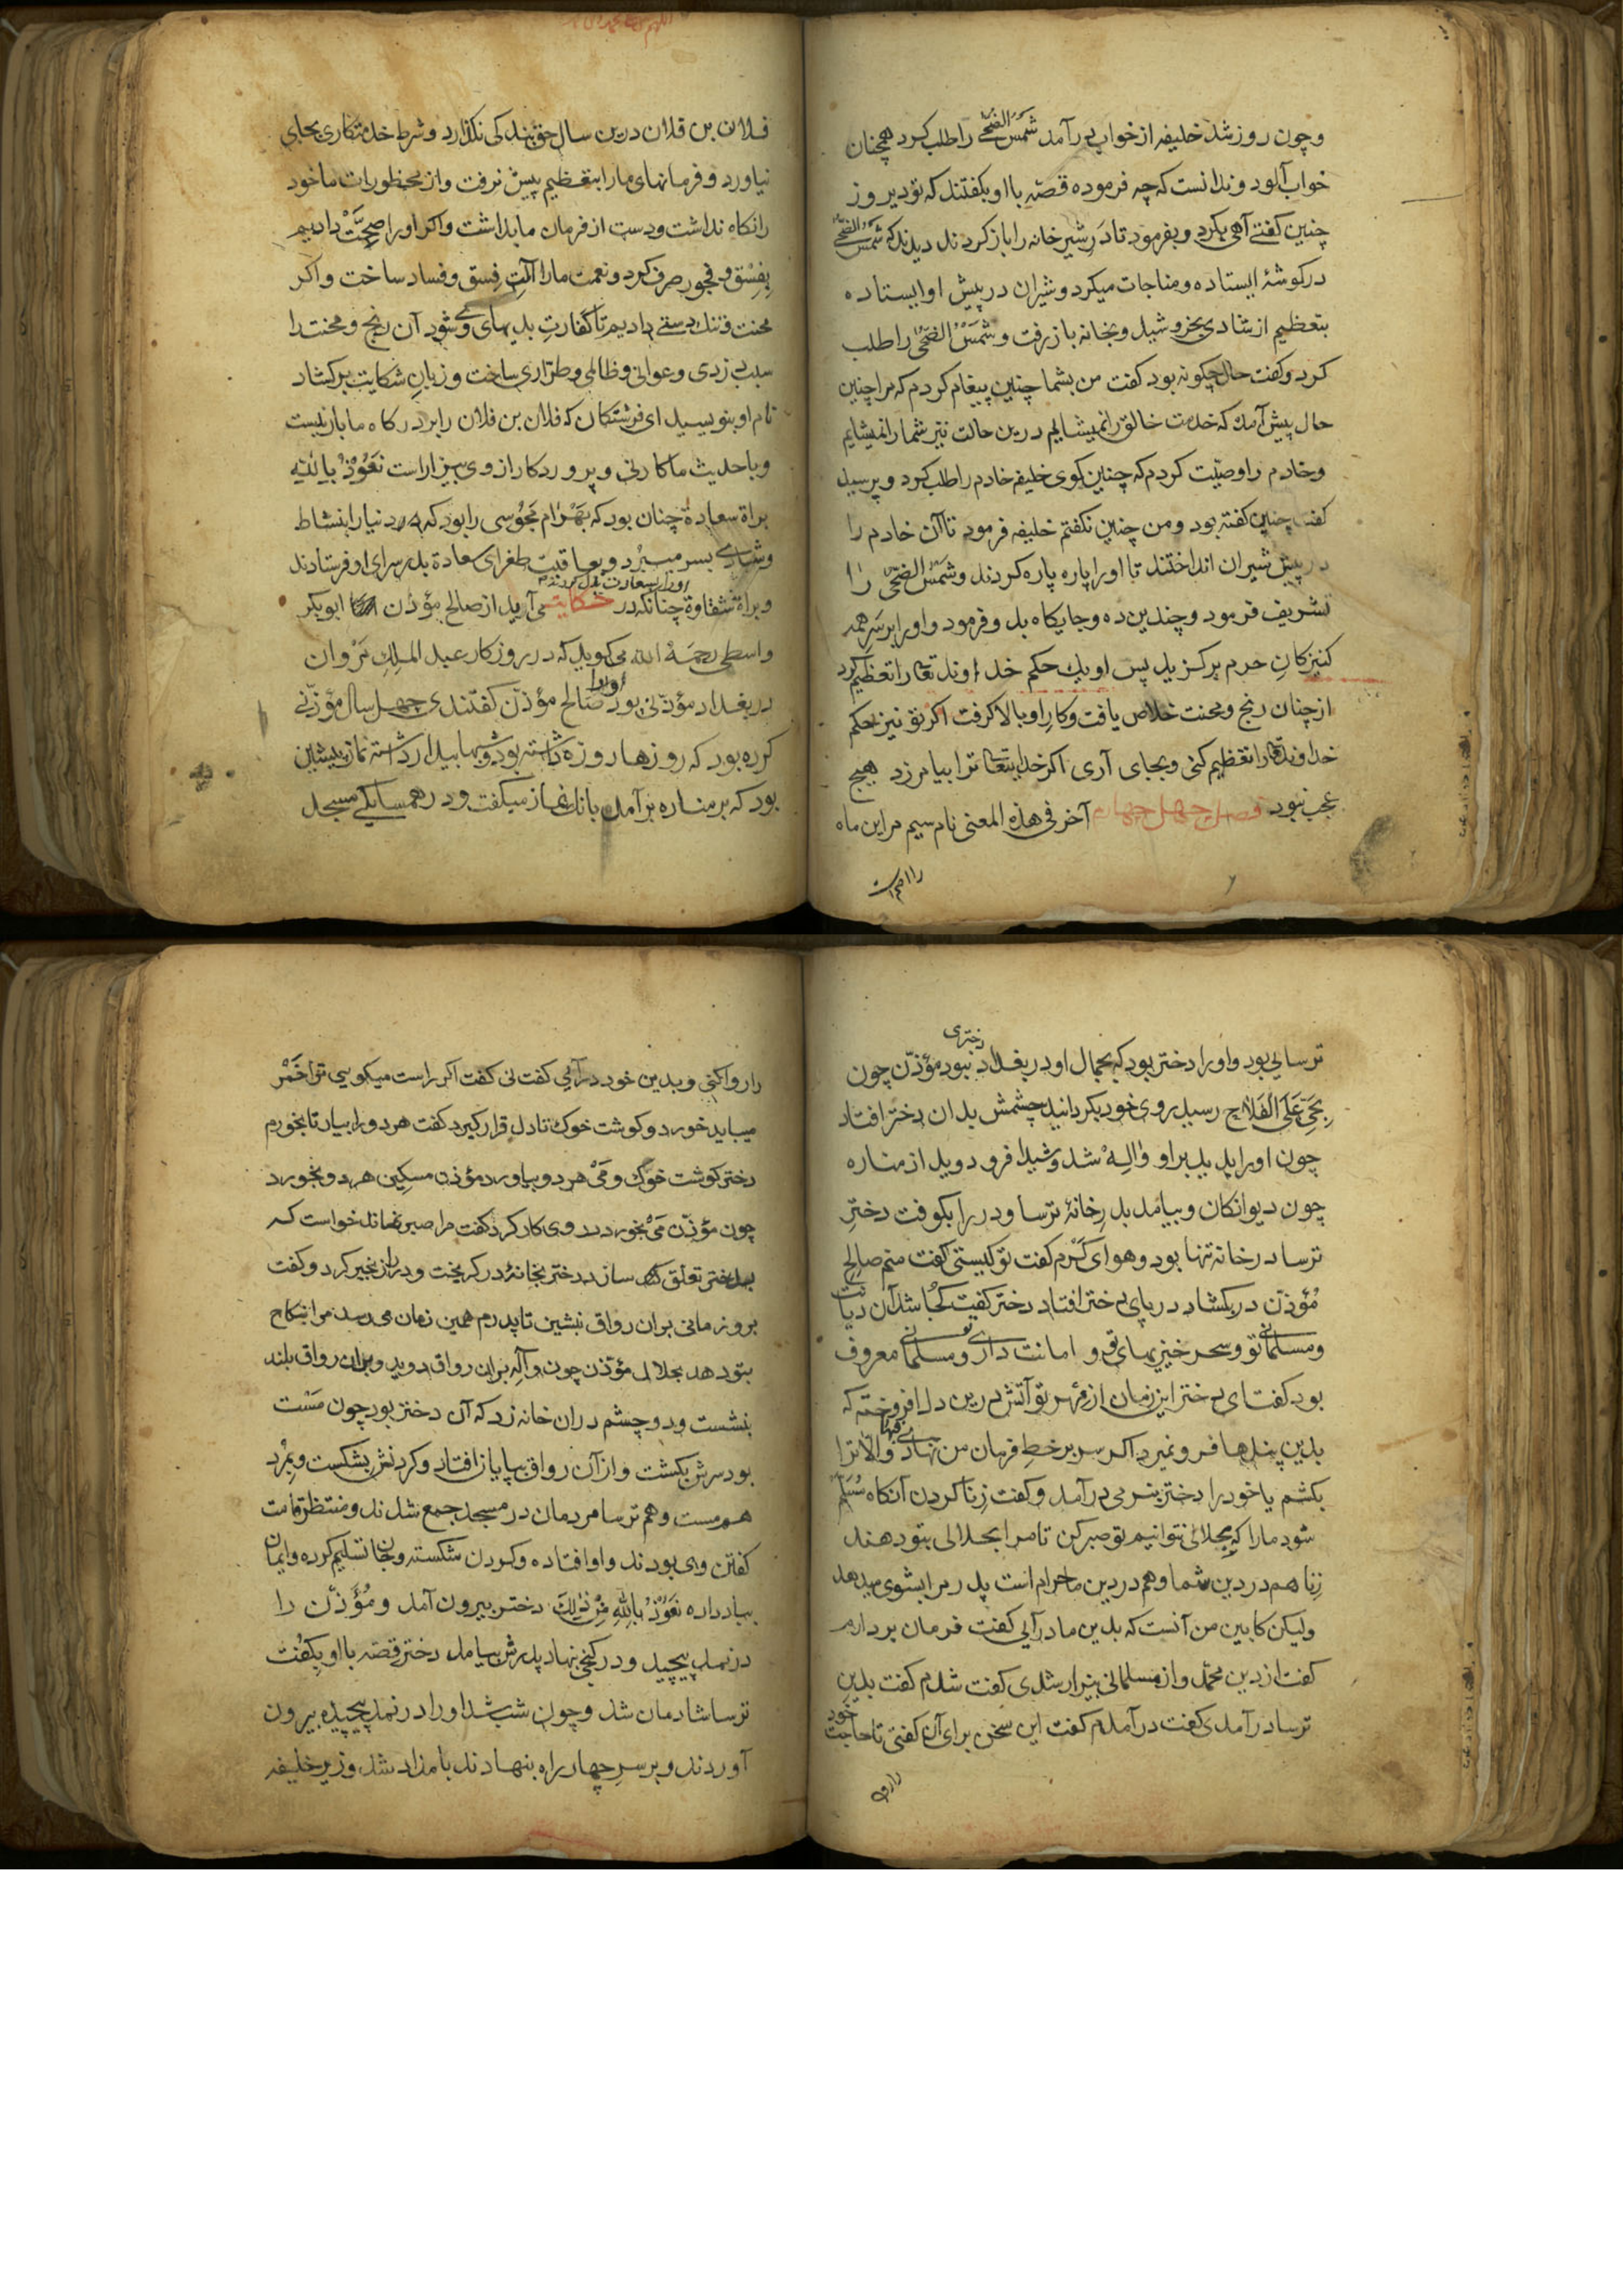 و چون روز شد خلیفه از خواب برآمد شَمسُ الضُّحی را طلب کرد همچنان
خواب آلود و ندانست که چه فرموده قصّه با او بکفتند که تو دیروز
چنین کفتی آهی بکرد و بفرمود تا دَرِ شیرخانه را باز کردند دیدند که شَمسُ الضُّحی
در کوشهٔ ایستاده و مناجات میکرد و شیران در پیش او ایستاده
بتعظیم از شادی بخروشید و بخانه باز رفت و شَمْسُ الضُّحی را طلب
کرد و کفت حال چکونه بود کفت من بشما چنین پیغام کردم که مرا چنین
حال پیش آمد که خدمت خالق را نمیشایم درین حالت نیز شما را نمیشایم
و خادم را وصیّت کردم که چنین کوی خلیفه خادم را طلب کرد و پرسید
کفت چنین کفته بود و من چنین نکفتم خلیفه فرمود تا آن خادم را
در پیش شیران انداختند تا او را پاره پاره کردند و شَمسُ الضُّحی را
تشریف فرمود و چندین ده و جایکاه بد و فرمود و او را بر سَرِ همه
کنیزکانِ حرم برکزید پس او یك حکم خداوند تعا را تعظیم کرد
از چنان رنج و محنت خلاص یافت و کار او بالا کرفت اکر تو نیز حکم
خداوند تعا را تعظیم کنی و بجای آری اکر خدایتعا ترا بیامرزد هیچ
عجب نبود فصل چهل چهارم آخر فی هذه المعنی نام سیم مر این ماه
را
فلان بن فلان درین سال حق بندکی نکذارد و شرط خدمتکاری بجای
نیاورد و فرمانهای ما را بتعظیم پیش نرفت و از محظورات ما خود
را نکاه نداشت و دست از فرمان ما بداشت و اکر او را صِحَّتْ دادیم
بِفِسْق و فجور صرف کرد و نعمت ما را آلتِ فِسق و فساد ساخت و اکر
محنت و تنك دستی دادیم تا کفارتِ بدیهای وی شود آن رنج و محنت را
سبب دزدی و عوانی و ظالمی و طرّاری ساخت و زبانِ شکایت برکشاد
نام او بنویسید ای فرشتکان که فلان بن فلان را بر درکاه ما بار نیست
و با حدیث ما کار نی و پروردکار از وی بیزار است نَعُوْذُ بِاللّٰهِ
براة سعادة چنان بود که بَهْرَام مَجُوْسی را بود که در دنیا را بنشاط
و شادی بسر میبرد و بعاقبت طغرای سعادة بدر سرای او فرستادند
و براة شقاوة چنانکه در حکایت می آرید از صالح مؤذن ابوبکر
واسطی رحمة الله می کوید که در روزکار عبد الملِكِ مَرْوان
در بغداد مؤذّنی بود او را صالح مؤذّن کفتندی چهل سال مؤذّنی
کرده بود که روزها روزه داشته بود و شبها بیدار داشته نماز پیشین
بود که بر مناره برآمد بانك نماز میکفت و در همسایکی مسجد
ترسایی بود و او را دختر بود که بجمال او در بغداد دختری نبود مؤذّن چون
بِحَیّ عَلَی الْفَلَاح رسید روی خود بکردانید چشمش بدان دختر افتاد
چون او را بدید بر او وَالِهْ شد و شیدا فرو دوید از مناره
چون دیوانکان و بیامد بدرِ خانهٔ ترسا و در را بکوفت دخترِ
ترسا در خانه تنها بود و هوای کَرْم کفت تو کیستی کفت منم صالح
مُؤذّن در بکشاد در پای دختر افتاد دختر کفت کجا شد آن دیانت
و مسلمانی تو و سحرخیزیهای تو و امانت داری تو و مسلمانی معروف
بود کفت ای دختر این زمان از مِهرِ تو آتش درین دل افروخته که
بدین پندها فرو نمیرد اکر سر بر خطِ فرمان من نهادی فبها و الّا ترا
بکشم یا خود را دختر بنرمی درآمد و کفت زنا کردن آنکاه مُسَلّم
شود ما را که بحلالی نتوانیم تو صبر کن تا مرا بحلالی بتو دهند
زِنا هم در دین شما و هم در دین ما حرام است پدر مرا بشوی میدهد
ولیکن کابین من آنست که بدین ما درآیی کفت فرمان بردارم
کفت از دین محمّد و از مسلمانی بیزار شدی کفت شدم کفت بدین
ترسا درآمدی کفت درآمدم کفت این سخن برای آن کفتی تا حاجت خود
را روا کنی و بدین خود درآیی کفت نی کفت اکر راست میکویی ترا خَمْر
میباید خورد و کوشت خوك تا دل قرار کیرد کفت هر دو را بیار تا بخورم
دختر کوشت خوك و مَیْ هر دو بیاورد مؤذن مسکین هر دو بخورد
چون مؤذّن مَیْ بخورد در وی کار کرد کفت مرا صبر نماند خواست که
بدختر تعلق سازد دختر بخانهٔ در کریخت و در را زنجیر کرد و کفت
برو زمانی بران رواق بنشین تا پدرم همین زمان می رسد مرا بنکاح
بتو دهد بحلالی مؤذّن چون واله بران رواق دوید و بران رواق بلند
بنشست و دو چشم دران خانه زد که آن دختر بود چون مَسْت
بود سرش بکشت و از آن رواق بپایان افتاد و کردنش بشکست و بِمُرد
هم مست و هم ترسا مردمان در مسجد جمع شدند و منتظر قامت
کفتن وی بودند و او افتاده و کردن شکسته و جان تسلیم کرده و ایمان
بباد داده نَعُوْذُ بِاللّٰهِ مِنْ ذٰلِكَ دختر بیرون آمد و مُؤَذّن را
در نمد پیچید و در کنجی نهاد پدرش بیامد دختر قصّه با او بکِفُت
ترسا شادمان شد و چون شب شد او را در نمد پیچیده بیرون
آوردند و بر سرِ چهار راه بنهادند بامداد شد وزیر خلیفه